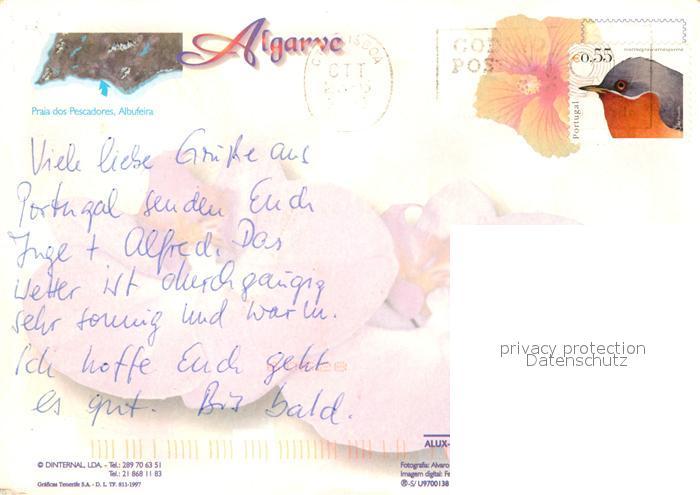 Algarve
LISBOA
CTT
€0.55
Portugal
Praia dos Pescadores, Albufeira
Viele liebe Grüße aus
Portugal senden Euch
Inge + Alfred. Das
Wetter ist durchgängig
sehr sonnig und warm.
Ich hoffe Euch geht
es gut. Bis bald.
privacy protection
Datenschutz
ALUX-
© DINTERNAL, LDA. - Tel.: 289 70 63 51
Tel.: 21 868 11 83
Gráficas Tenerife S.A. - D. L. TF. 811-1997
Fotografia: Alvaro
Imagem digital: Fe
®-S/ U9700138